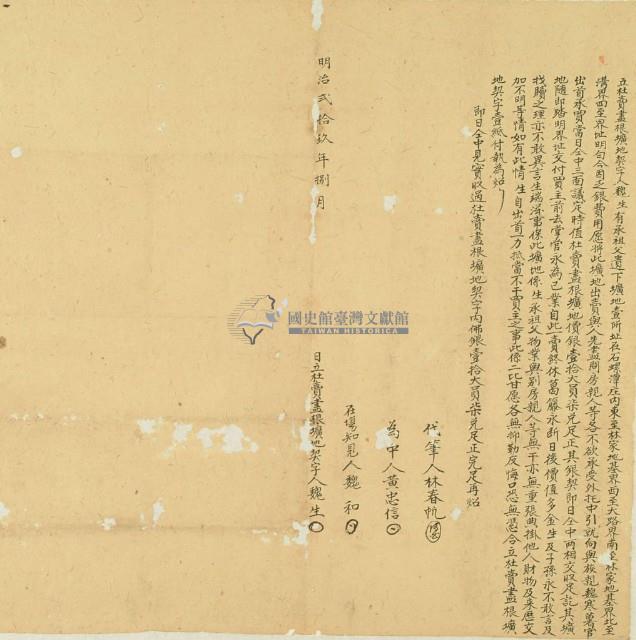 立杜賣盡根壙地契字人魏生有承祖父遺下壙地壹所址在石螺潭庄內東至林家地基界西至大路界南至林家地基界北至
溝界四至界址明白今因乏銀費用愿將此壙地出賣與人先盡問房親人等各不欲承受外托中引就向與族親魏寒著官
出首承買當日仝中三面議定時值杜賣盡根壙地價銀壹拾大員柒兌足正其銀契即日仝中兩相交收足訖其壙
地隨即踏明界址交付買主前去掌管永為己業自此一賣終休葛籐永斷日後價值多金生及子孫永不敢言及
找贖之理亦不敢異言生端滋事保此壙地係生承祖父物業與別房親人等無干亦無重張典掛他人財物及來歷交
加不明等情如有此情生自出首一力抵當不干買主之事此係二比甘愿各無抑勒反悔口恐無憑合立杜賣盡根壙
地契字壹紙付執為炤
即日仝中見實收過杜賣盡根壙地契字內佛銀壹拾大員柒兌足正完足再炤
代筆人林春帆
為中人黃忠信
在場知見人魏和
明治弍拾玖年捌月 日立杜賣盡根壙地契字人魏生
國史館臺灣文獻館
TAIWAN HISTORICA